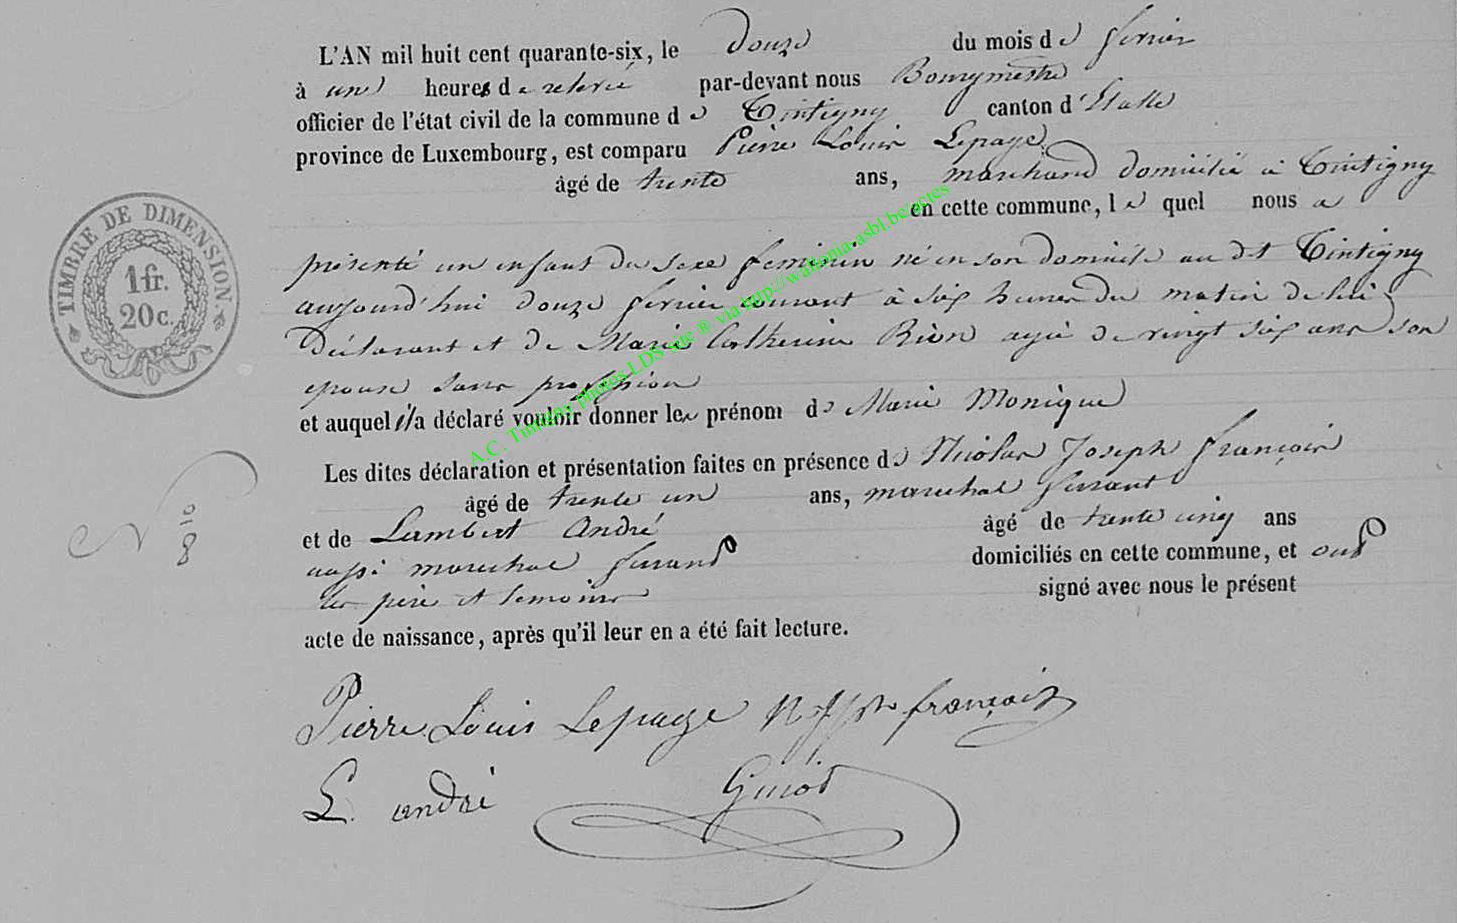 L'AN mil huit cent quarante-six, le douze du mois de fevrier
à une heures de relevée par-devant nous Bourgmestre
officier de l'état civil de la commune de Tintigny canton d'Etalle
province de Luxembourg, est comparu Pierre Louis Lepage
âgé de trente ans, marchand domicilié à Tintigny
en cette commune, le quel nous a
présenté un enfant du sexe feminin né en son domicile au dit Tintigny
aujourd'hui douze fevrier courant à six heures du matin de lui
Déclarant et de Marie Catherine Rion agée de vingt six ans son
epouse sans profession
et auquel il a déclaré vouloir donner les prénom de Marie Monique
Les dites déclaration et présentation faites en présence de Nicolas Joseph François
âgé de trente un ans, marechal ferrant
et de Lambert André âgé de trente cinq ans
aussi marechal ferrant domiciliés en cette commune, et ont
les père et temoins signé avec nous le présent
acte de naissance, après qu'il leur en a été fait lecture.
Pierre Louis Lepage N Jph françois
L. andré Guiot
TIMBRE DE DIMENSION.
1 fr.
20 c.
No
8
A.C. Tintigny photos LDS via http://wallonia-asbl.be/actes